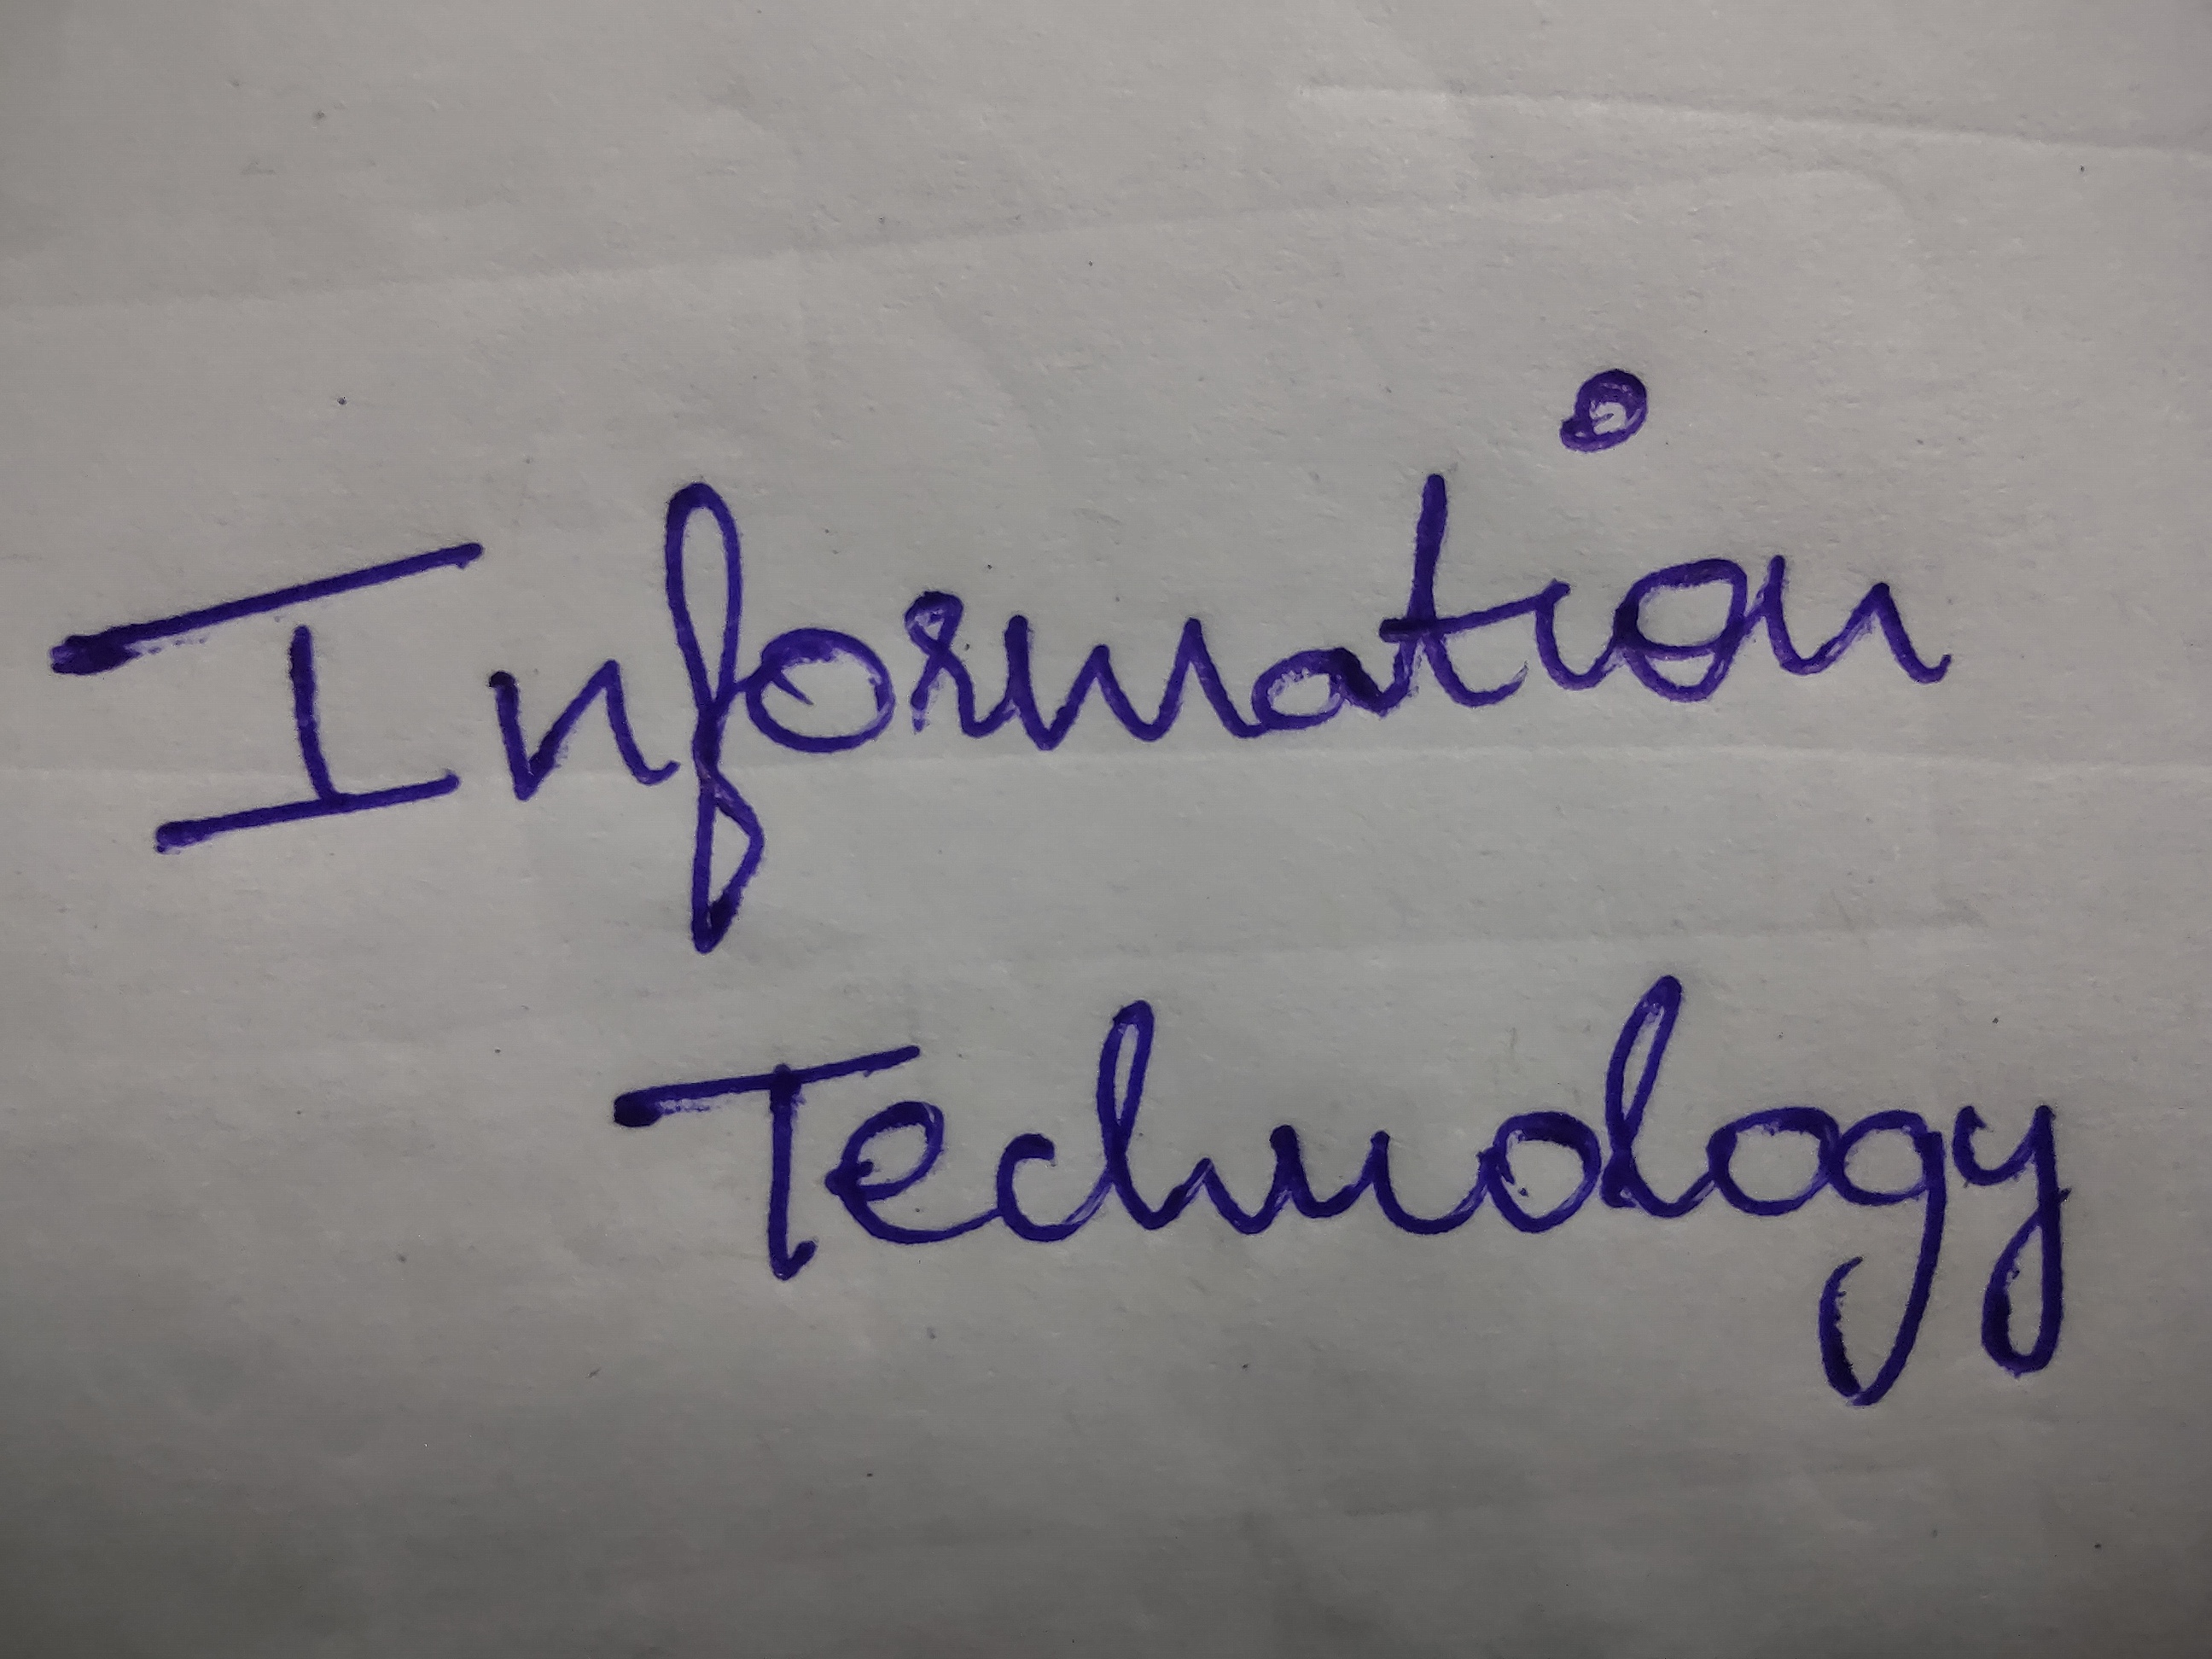 Information
Technology